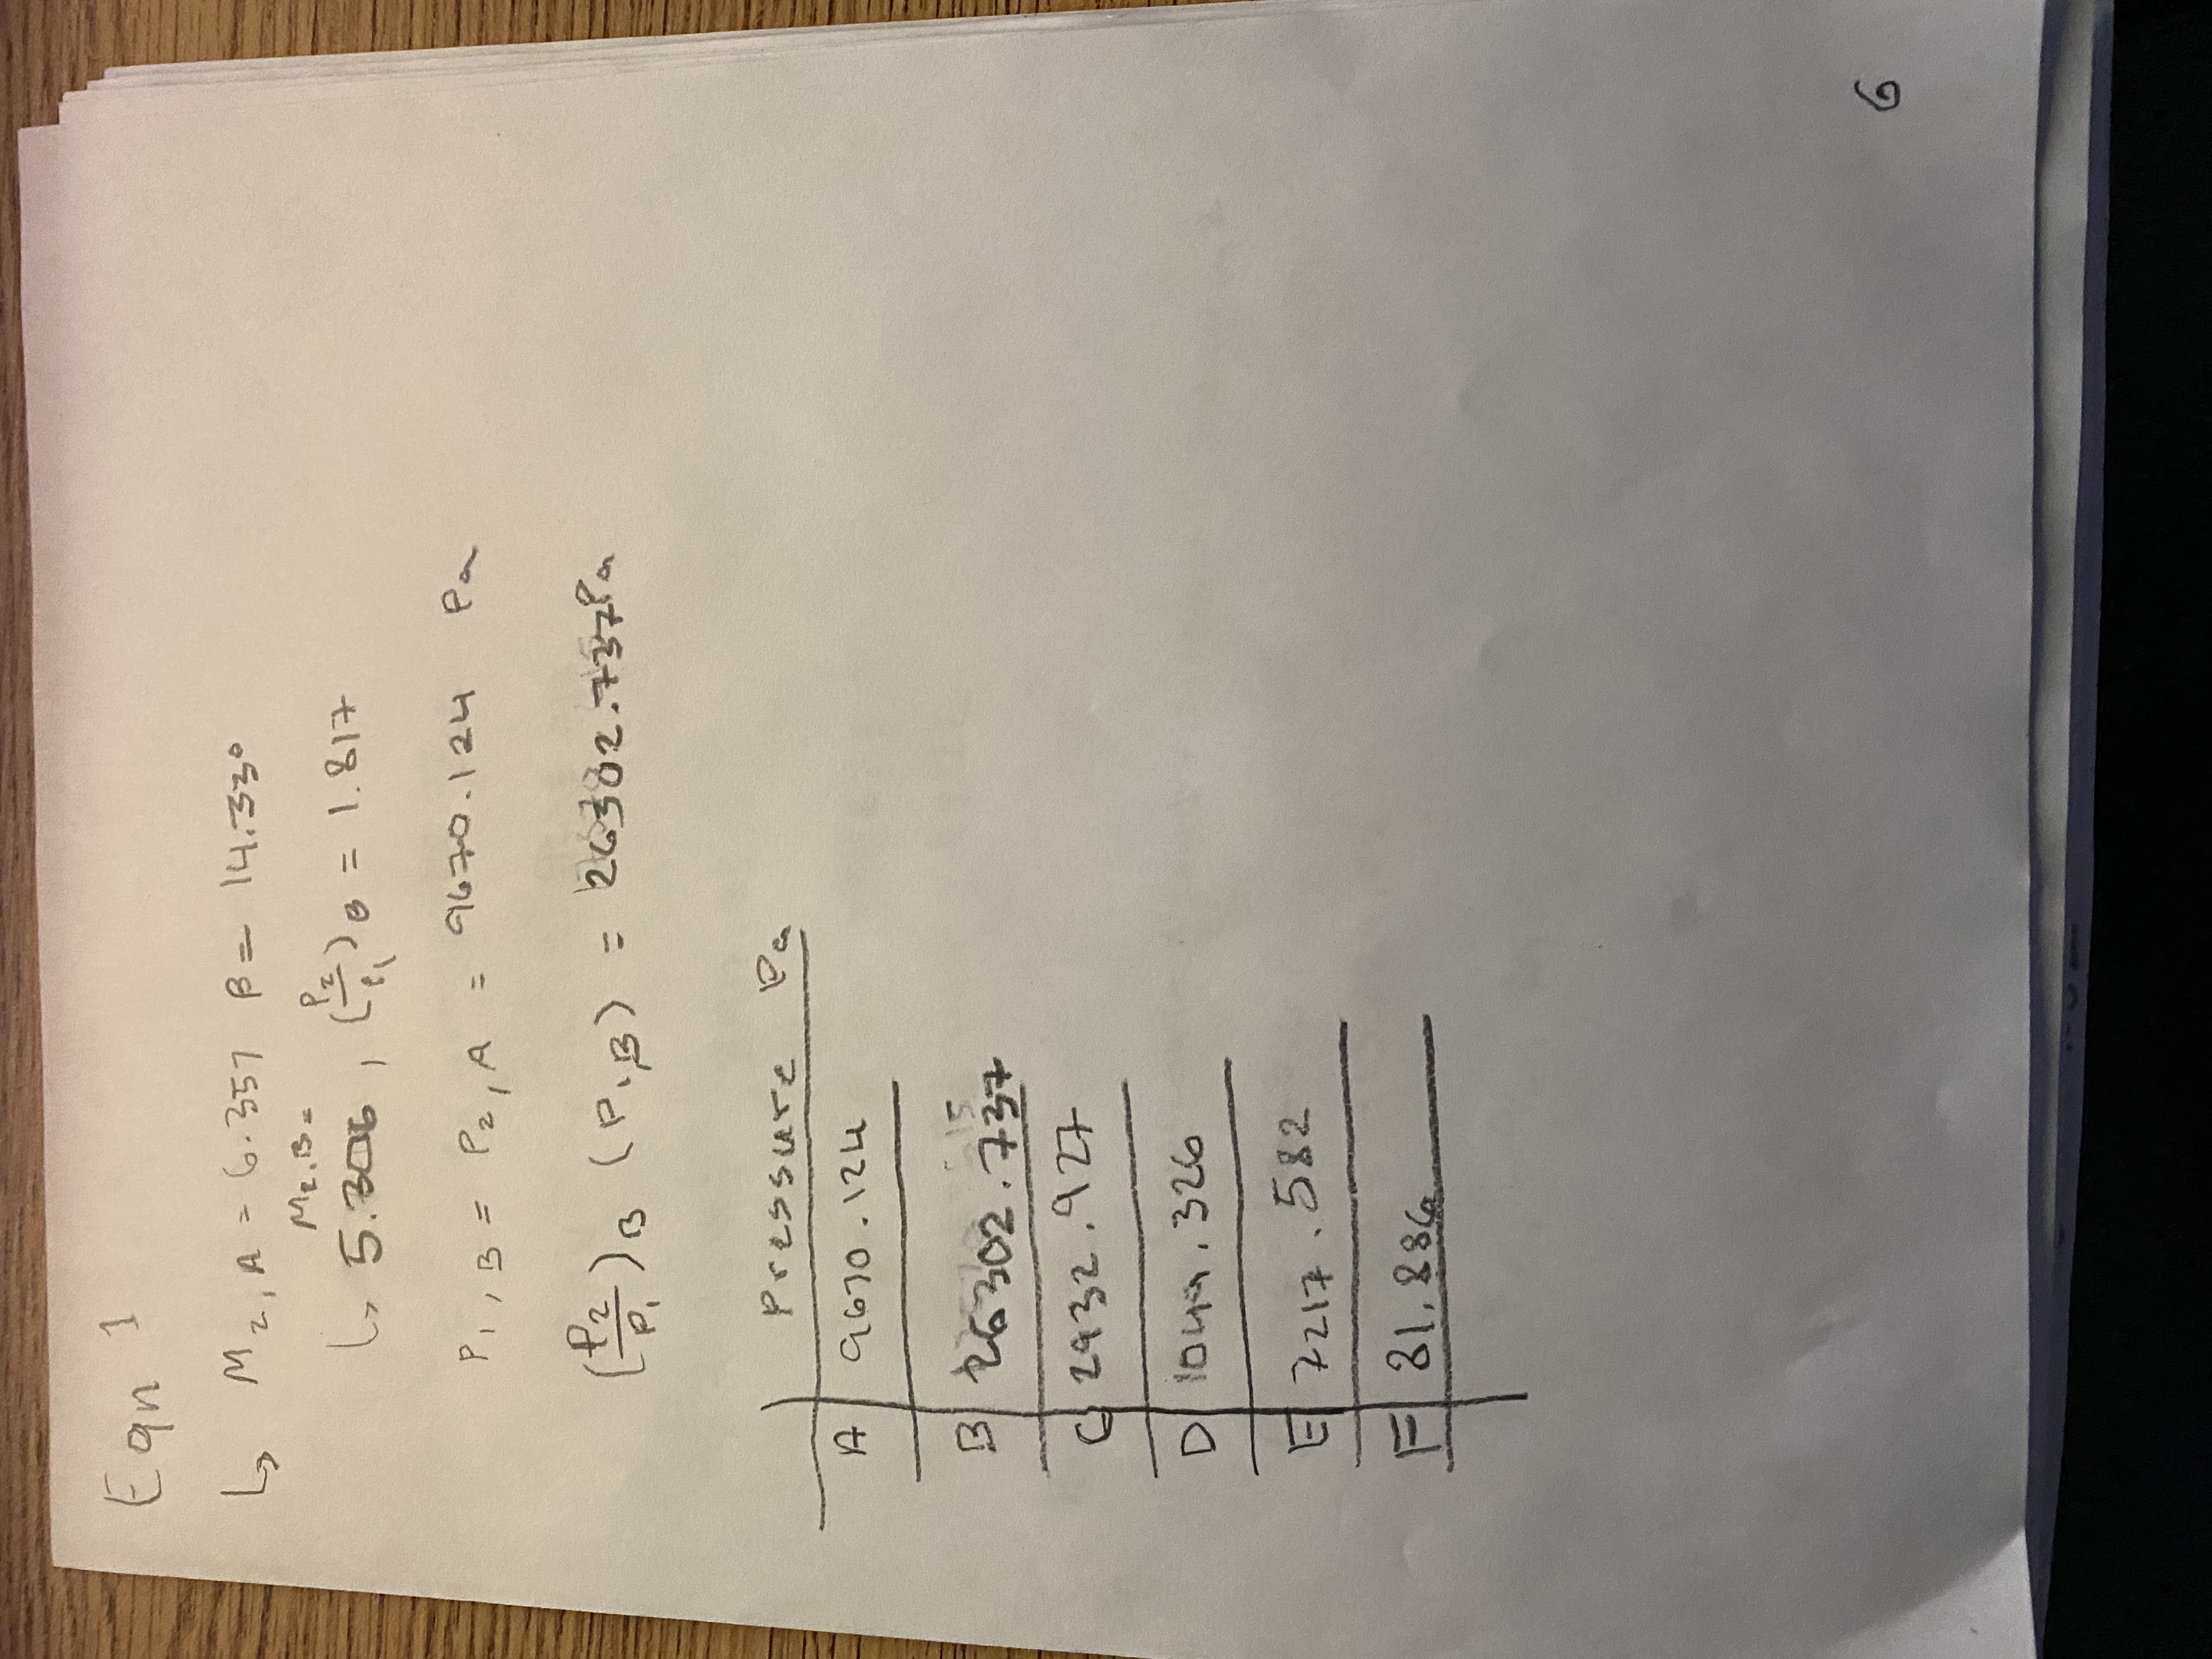 Eqn 1
↳ M2,A = 6.357 β = 14.33°
M2,B =
↳ 5.306, (P2/P1)B = 1.817
P1,B = P2,A = 9670.124 Pa
(P2/P1)B (P1,B) = 26302.737 Pa
Pressure Pa
A 9670.124
B 26302.737
C 2932.927
D 1049.326
E 7217.582
F 81.886
6